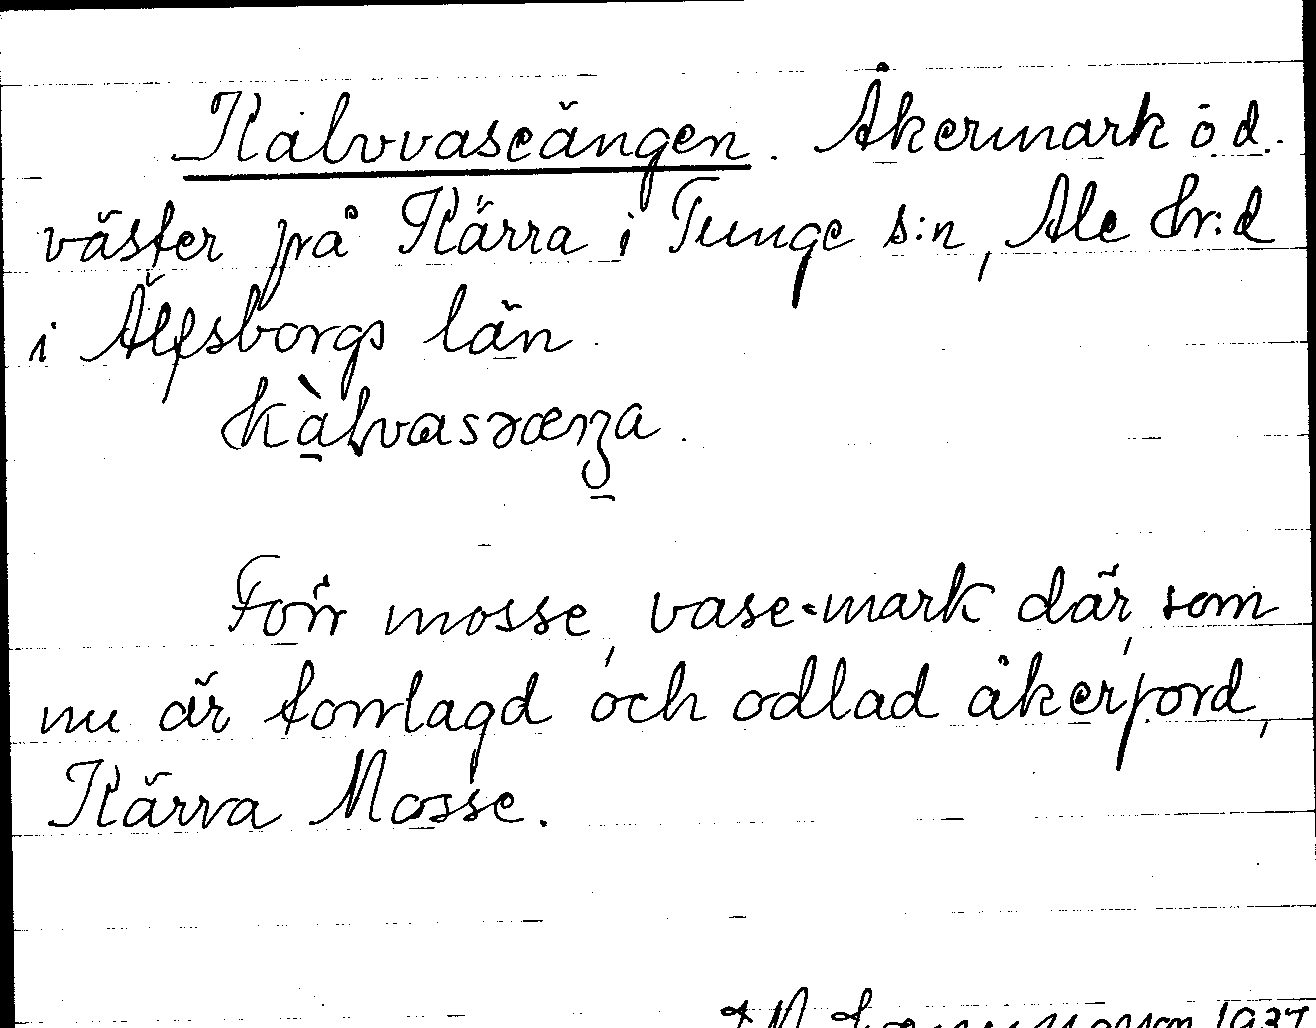 Kalvvaseängen. Åkermark öd.
väster på Kärra i Tunge s:n, Ale Hr:d
i Älfsborgs län.
kàlvasəæŋa.
Förr mosse, vase-mark där, som
nu är torrlagd och odlad åkerjord,
Kärra Mosse.
1937